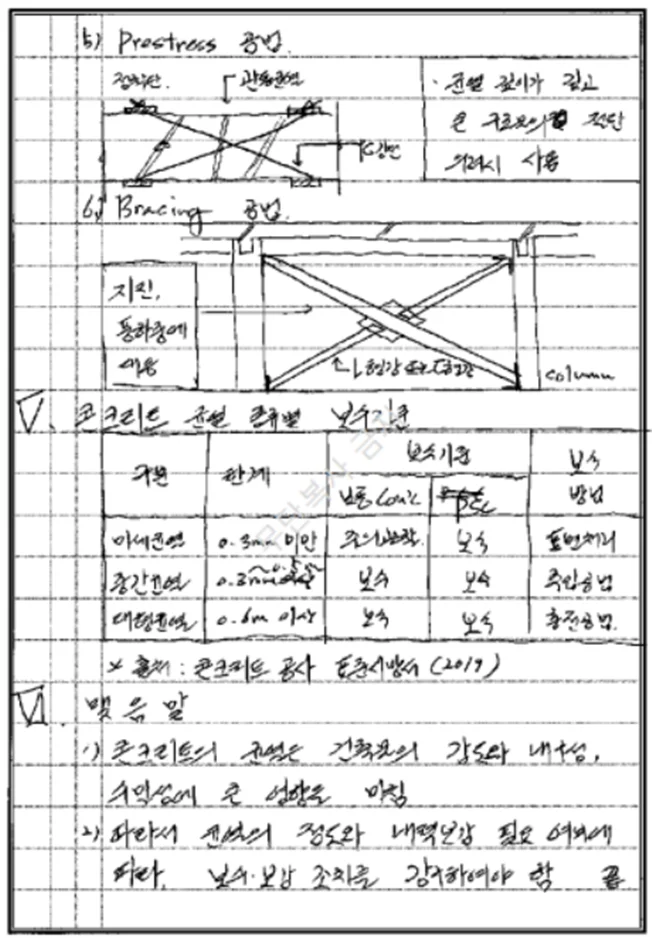 5) Prestress 공법.
정착단.
관통균열
PC강번
· 균열 깊이가 깊고
큰 구조물의 전단
의려시 사용
6.) Bracing 공법.
지진,
횡하중에
대응
L형강 또는 ㄷ형강
column
Ⅴ. 콘크리트 균열 종류별 보수기준
구분 한계 보수기준 보수 방법
보통Conc PSC
미세균열 0.3mm 미만 주의관찰. 보수 표면처리
중간균열 보수 보수 주입공법
대형균열 0.6m 이상 보수 보수 충전공법.
※ 출처 : 콘크리트 공사 표준시방서 (2019)
Ⅵ. 맺음말
1) 콘크리트의 균열은 건축물의 강도와 내구성,
수밀성에 큰 영향을 미침
2) 따라서 균열의 정도와 내력보강 필요 여부에
따라, 보수·보강 조치를 강구하여야 함 끝
무단복사 금지